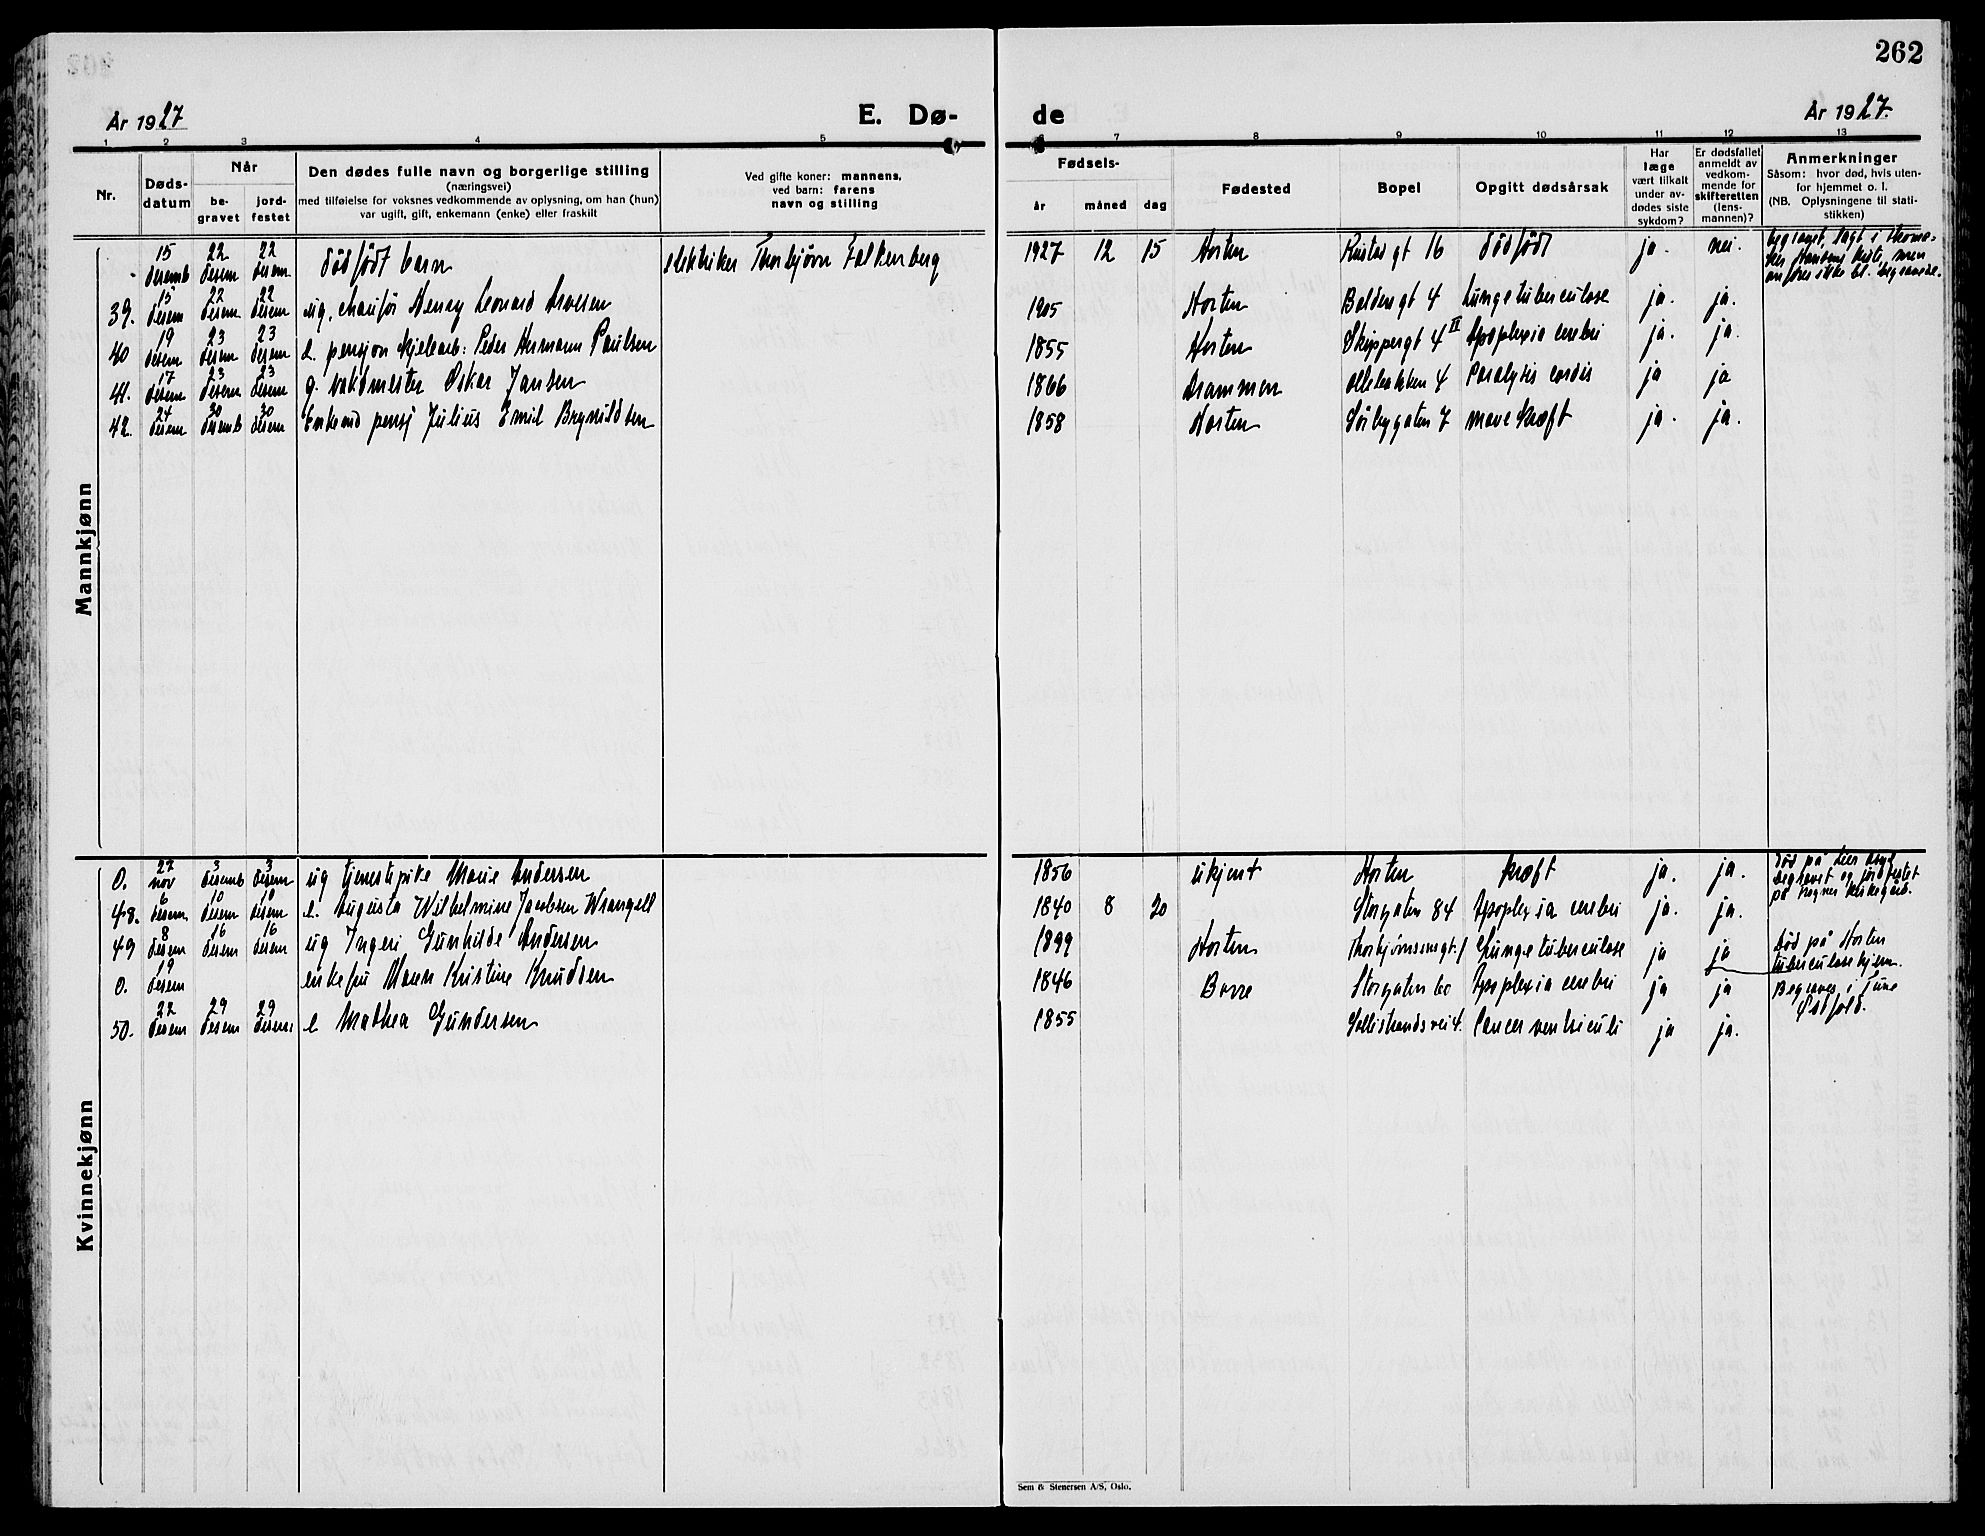 262
År 1927
E. Dø-
de
År 1927.
1 2 3 4 5 6 7 8 9 10 11 12 13
Nr.
Døds-
datum
Når
be-
gravet
jord-
festet
Den dødes fulle navn og borgerlige stilling
(næringsvei)
med tilføielse for voksnes vedkommende av oplysning, om han (hun)
var ugift, gift, enkemann (enke) eller fraskilt
Ved gifte koner: mannens,
ved barn: farens
navn og stilling
Fødsels-
år
måned
dag
Fødested
Bopel
Opgitt dødsårsak
Har
læge
vært tilkalt
under av-
dødes siste
sykdom?
Er dødsfallet
anmeldt av
vedkom-
mende for
skifteretten
(lens-
mannen)?
Anmerkninger
Såsom: hvor død, hvis uten-
for hjemmet o. l.
(NB. Oplysningene til stati-
stikken)
Mannkjønn
- 15 desemb 22 desem 22 desem dødfødt barn elektriker Thorbjørn Falkenberg 1927 12 15 Horten gt 16 dødfødt ja. nei.
begravet, lagt i
kiste, men
anføres ikke bl. begravede.
39. 15 desem 22 desem 22 desem ug. chaufør Henry Leonard 1905 Horten Baldersgt 4 Lungetuberculose ja. ja.
40 19 desem 23 desem 23 desem e. pensjon kjelearb: Peder Hermann Paulsen 1855 Horten Skippergt 4 II Apoplexia cerebri ja. ja.
41. 17 desem 23 desem 23 desem g. vaktmester Oskar Jansen 1866 Drammen 4 Paralysis cordis ja ja
42. 24 desem 30 desemb 30 desem Enkemd pensj Julius Emil Brynildsen 1858 Horten Sörbygaten 7 mavekræft ja. ja.
Kvinnekjønn
0. 27 nov 3 desemb 3 desem ug tjenestepike Marie Andersen 1856 ukjent Horten kræft ja. ja.
død på Lier Asyl
begravet og jordfestet
på kirkegård.
48. 6 desem 10 desem 10 desem e. Augusta Wilhelmine Jacobsen Wrangell 1840 8 20 Storgaten 84 Apoplexia cerebri ja. ja.
49 8 desem 16 desem 16 desem ug Ingeri Gunhilde Andersen 1899 Horten Thorbjørnsensgt. 1 Lungetuberculose ja ja
Død på Horten
tuberculosehjem.
0. 19 desem enkefru Maren Kristine Knudsen 1846 Borre Storgaten 60 Apoplexia cerebri ja ja
Begraves i June
Østfold.
50. 22 desem 29 desem 29 desem e Mathea Gundersen 1855 Sollistrandsvei 4. Cancer ventriculi ja ja.
Sem & Stenersen A/S, Oslo.